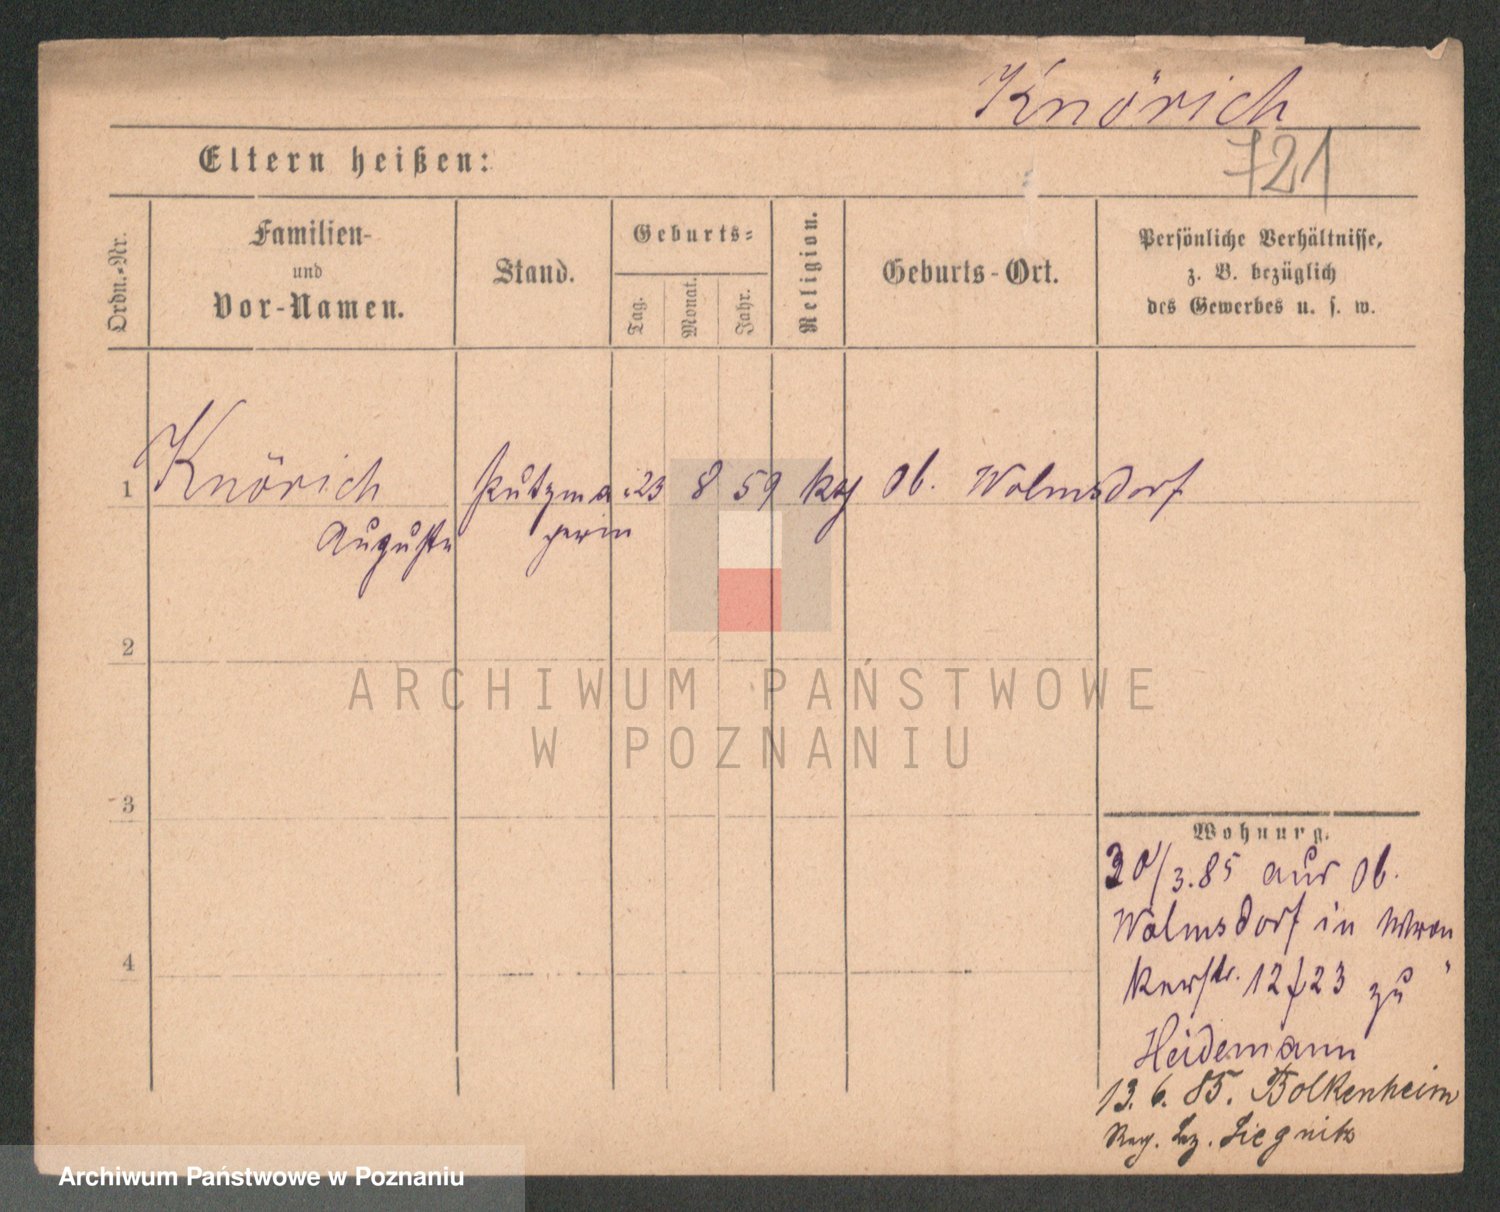 Knörich
721
Eltern heißen:
Ordn.-Nr.
Familien-
und
Vor-Namen.
Stand.
Geburts-
Tag.
Monat.
Jahr.
Religion.
Geburts-Ort.
Persönliche Verhältnisse,
z. B. bezüglich
des Gewerbes u. s. w.
1 Knörich Putzma 23 8 59 Ob. Wolmsdorf
Auguste gerin
2
ARCHIWUM PAŃSTWOWE
W POZNANIU
3
Wohnung.
30/3.85 aus Ob.
Wolmsdorf in Wron
kerstr. 12/23 zu
Heidemann
4
13. 6. 85. Bolkenheim
Reg. Bez. Liegnitz
Archiwum Państwowe w Poznaniu